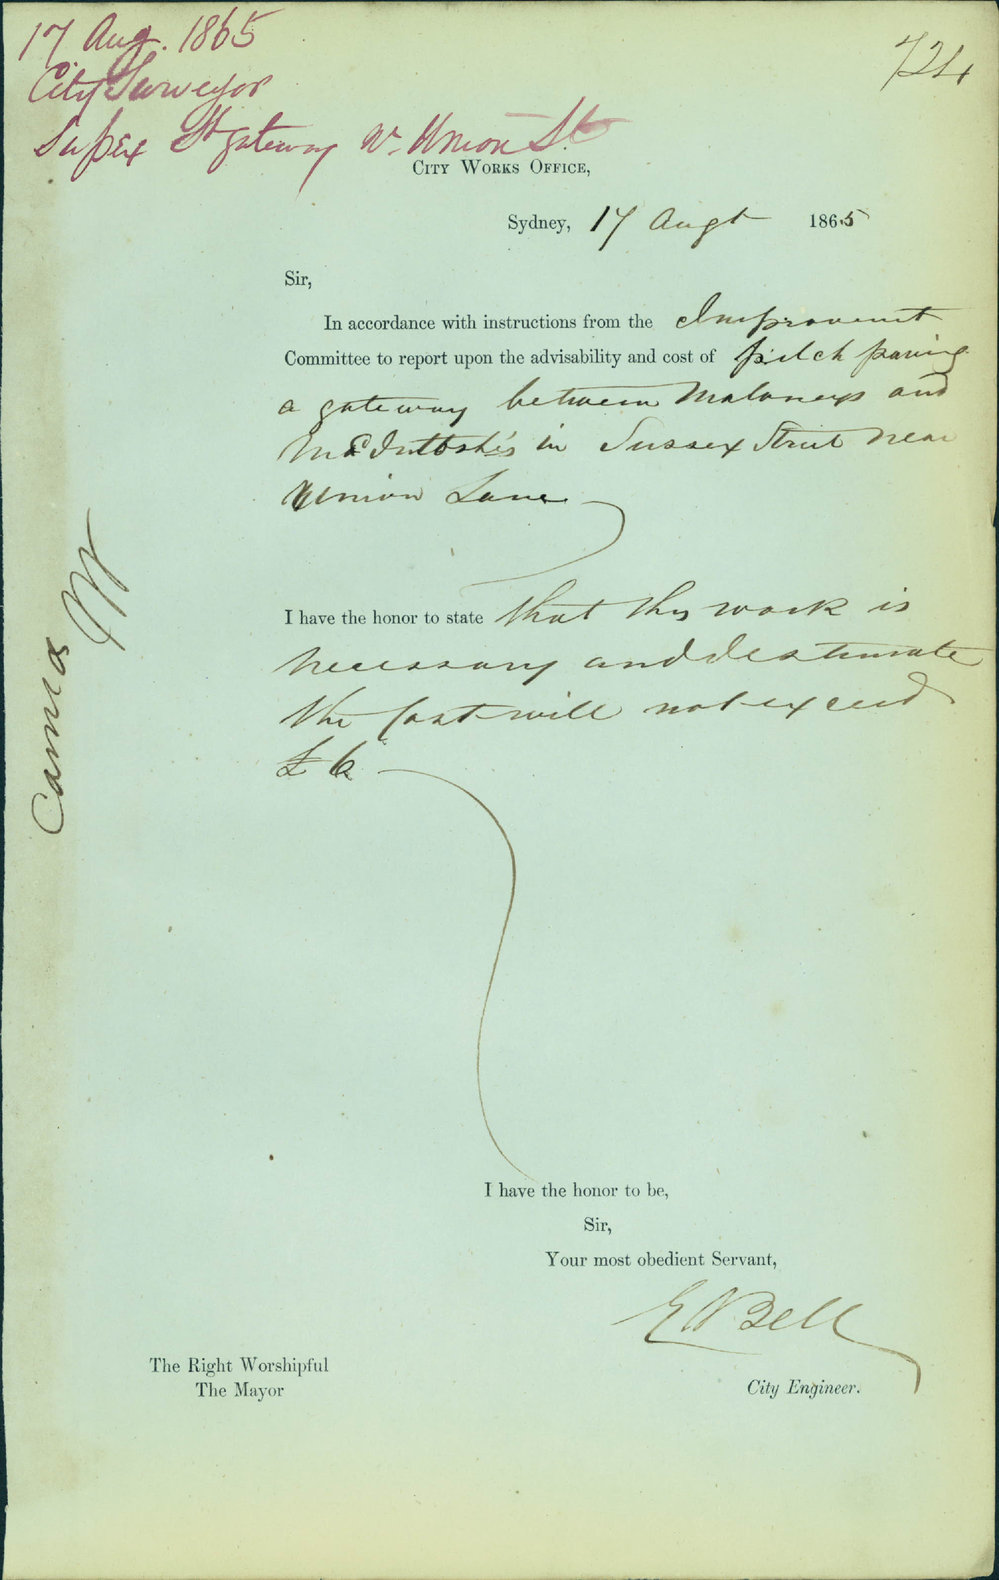 17 Aug. 1865
724
City Surveyor
Sussex St gateway Nr. Union St
CITY WORKS OFFICE,
Sydney, 17 Augt 1865
Sir,
In accordance with instructions from the Improvement
Committee to report upon the advisability and cost of pitch paving
a gateway between Maloneys and
McIntosh's in Sussex Street near
Union Lane
I have the honor to state that this work is
necessary and I estimate
the Cost will not exceed
£6
Carried
I have the honor to be,
Sir,
Your most obedient Servant,
E Bell
The Right Worshipful
The Mayor
City Engineer.